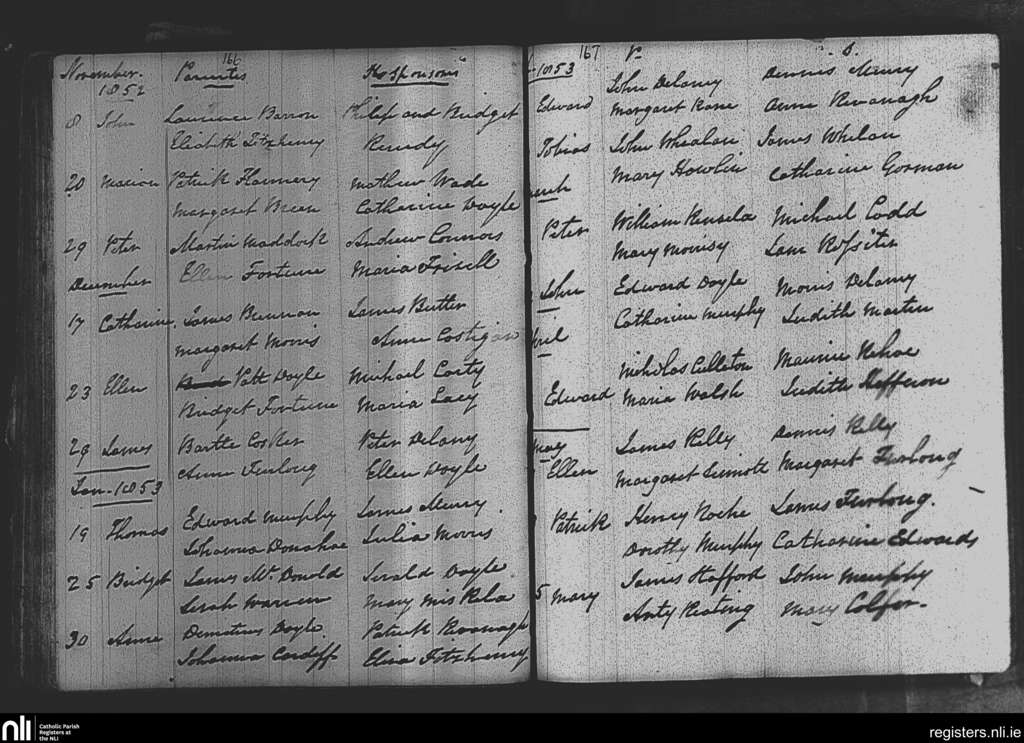 166
November. Parents The Sponsors
1852
8 John Laurence Barron Philip and Bridget
Elizabeth Fitzhenry Kennedy
20 Marion Patrick Flannery Mathew Wade
Margaret Breen Catharine Doyle
29 Peter Martin Maddock Andrew Connors
Ellen Fortune Maria Frisell
December
17 Catharine James Brennan James Butler
Margaret Morris Anne Costigan
23 Ellen Patt Doyle Michael Carty
Bridget Fortune Maria Lacy
29 James Bartle Cosker Peter Delany
Anne Furlong Ellen Doyle
Jan - 1853
19 Thomas Edward Murphy James Henry
Johanna Donahoe Julia Morris
25 Bridget James Mc Donold Gerald Doyle
Serah Warren Mary
30 Anne Demetrius Doyle Patrick Kavanagh
Johanna Cardiff Eliza Fitzhenry
167
1853 P S.
Edward John Delaney Dennis
Margaret Kane Anne Kavanagh
Tobias John Whealan James Whelan
Mary Howlin Catharine Gorman
arch
Peter William Kinsela Michael Codd
Mary Morrisy Rossiter
John Edward Doyle Morris Delany
Catharine Murphy Judith Martin
pril
Nicholas Culleton Maurice Kehoe
Edward Maria Walsh Judith Heffernon
May
Ellen James Kelly Dennis Kelly
Margaret Sinnott Margaret Furlong
Patrick Henry Roche James Furlong.
Dorothy Murphy Catharine Edwards
5 Mary James Stafford John Murphy
Anty Keating Mary Colfer.
nli Catholic Parish
Registers at
the NLI
registers.nli.ie